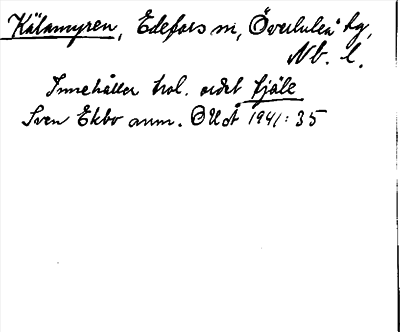 Kälamyren, Edefors sn, Överluleå tg,
Nb. l.
Innehåller trol. ordet kjäle
Sven Ekbo anm. OUÅ 1941: 35